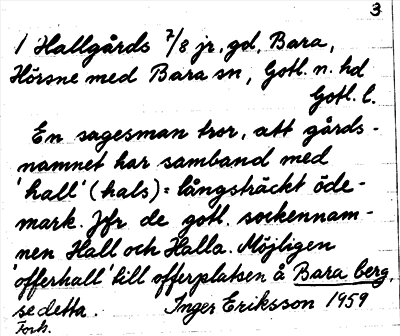 3
1 Hallgårds 7/8 jr, gd, Bara,
Hörsne med Bara sn, Gotl. n. hd
Gotl. l.
En sagesman tror, att gårds-
namnet har samband med
'hall' (hals) = långsträckt öde-
mark. Jfr de gotl. sockennam-
nen Hall och Halla. Möjligen
'offerhall' till offerplatsen å Bara berg,
se detta. Inger Eriksson 1959
Forts.